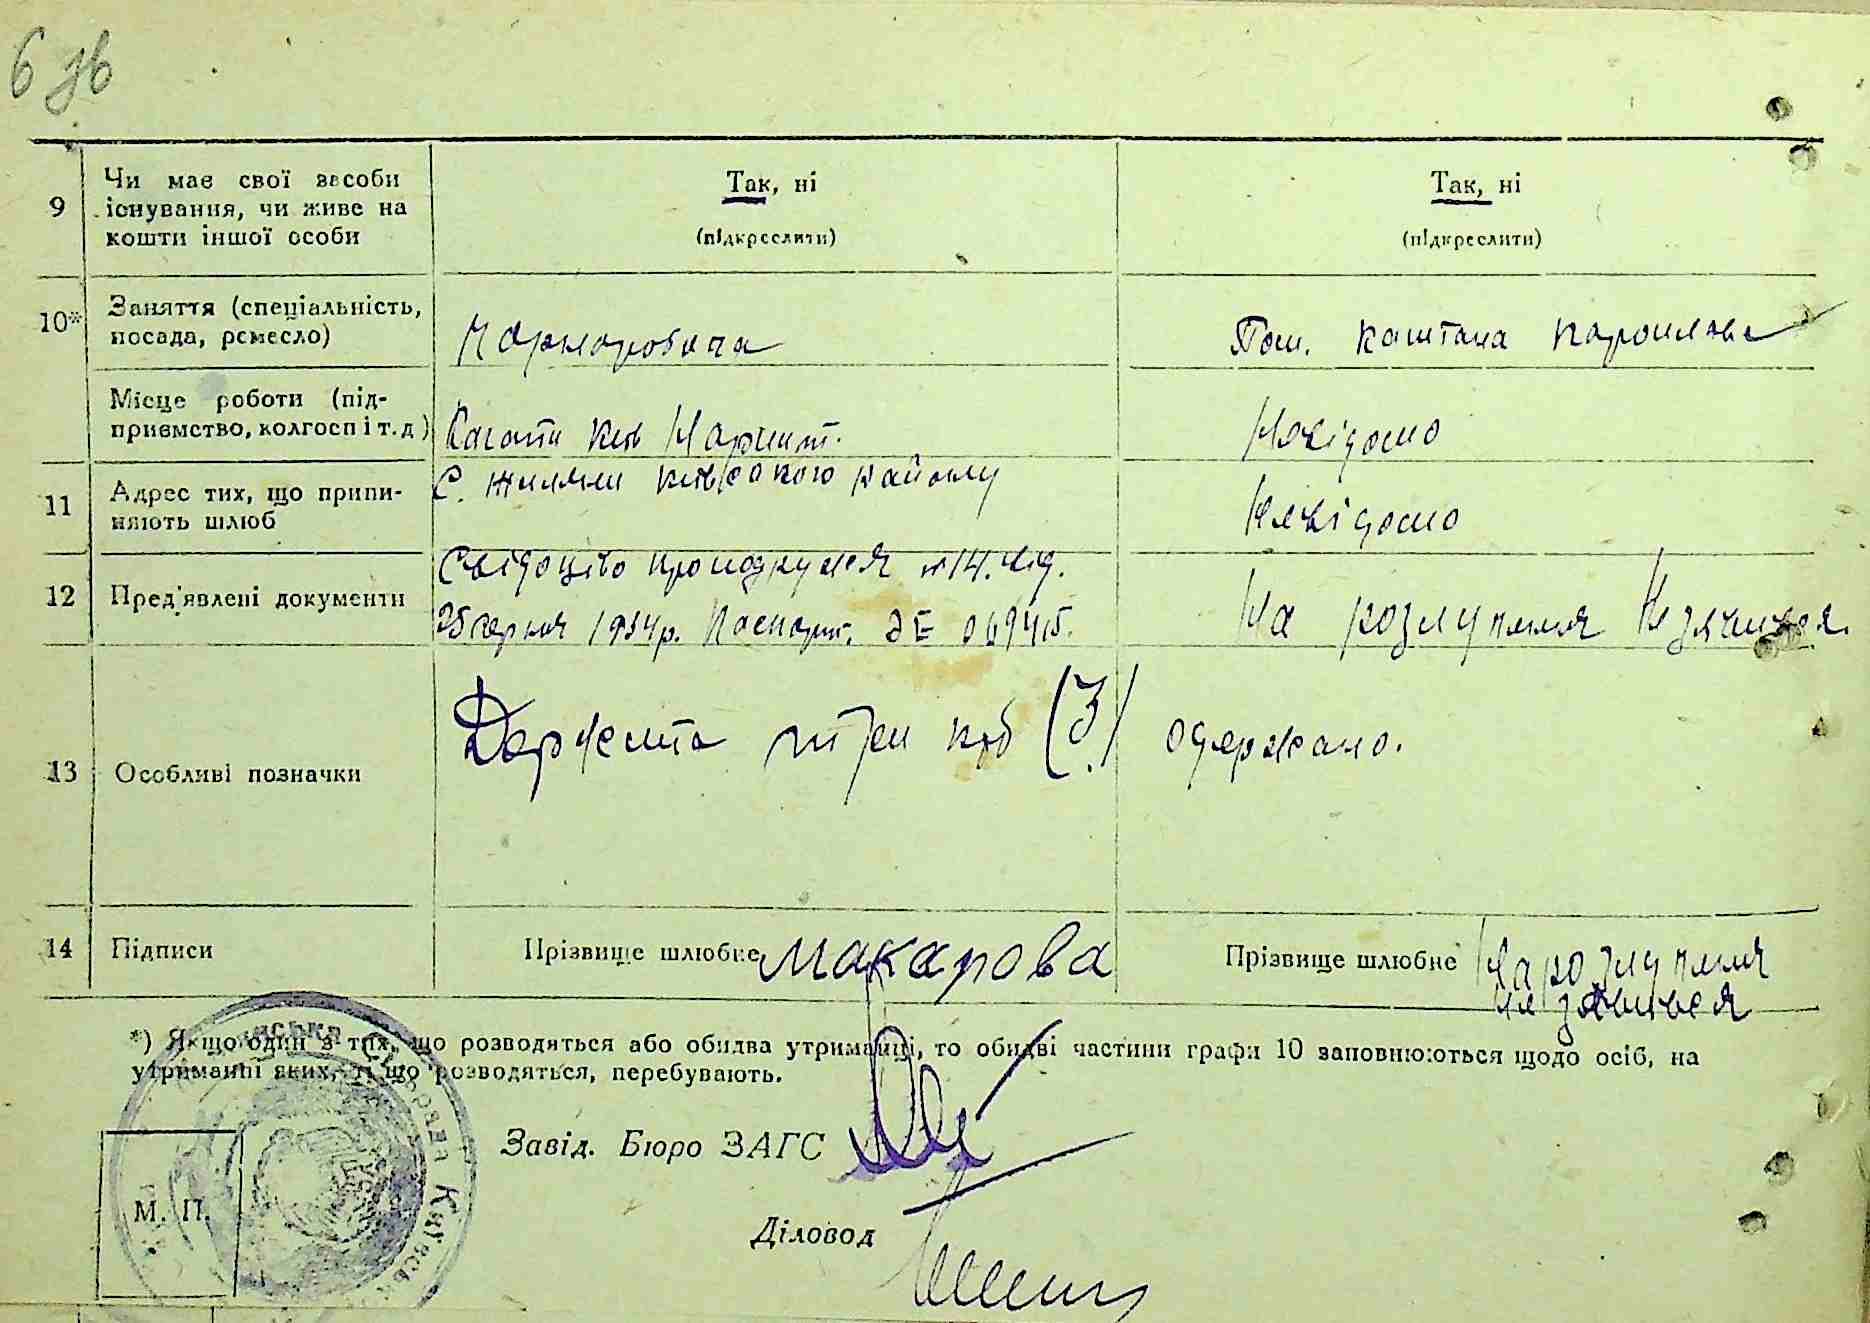 6 зв
9 Чи має свої засоби існування, чи живе на кошти іншої особи
Так, ні
(підкреслити)
Так, ні
(підкреслити)
10* Заняття (спеціальність, посада, ремесло)
Чорноробоча
Пом. капитана пароплава
Місце роботи (підприємство, колгосп і т. д)
Київ
Невідомо
11 Адрес тих, що припиняють шлюб
С. Жиляни Київського району
Невідомо
12 Пред'явлені документи
Свідоцтво про подружжя №14. від.
25 серпня 1934р. Паспорт.
На розлучення Не з'явився.
13 Особливі позначки
Держмита три крб (3) одержано.
14 Підписи
Прізвище шлюбне Макарова
Прізвище шлюбне На розлучення
не з'явився
*) Якщо один з тих, що розводяться або обидва утриманці, то обидві частини графи 10 заповнюються щодо осіб, на
утриманні яких, ті що розводяться, перебувають.
Завід. Бюро ЗАГС
М. П.
Діловод